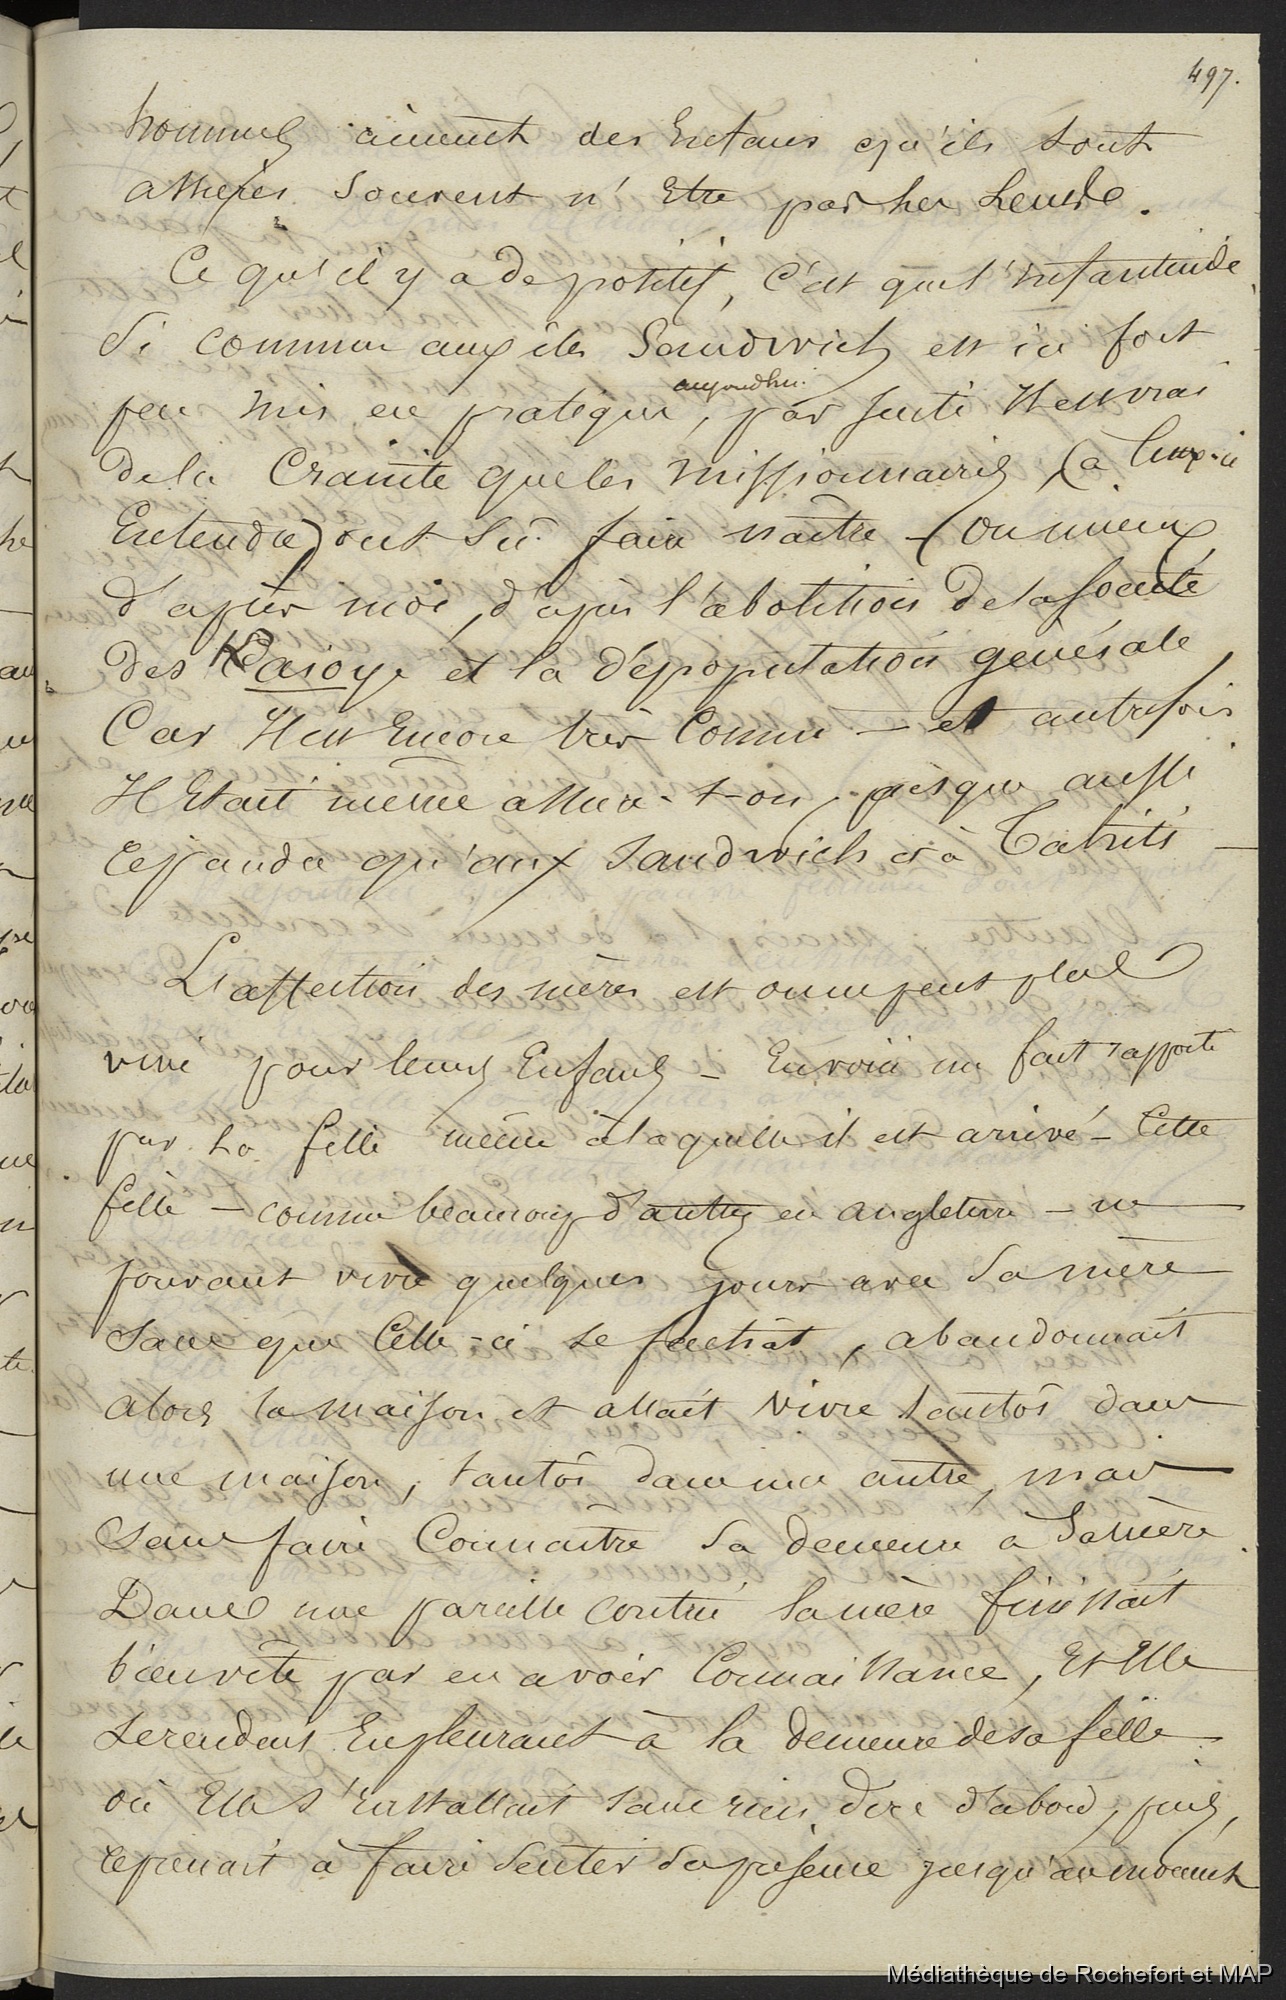 497.
hommes aiment des Enfans qu'ils sont
assurés souvent n'Etre pas les Leurs.
Ce qu'il y a de positif, C'est que l'infanticide
si commun aux iles Sandwich est ici fort
peu mis en pratique aujourdhui, par suite Il est vrai
de la Crainte que les missionnaires, (a
Entendre) ont su faire naître – (ou mieux
d'après moi, d'après l'abolition de la société
des Kaioye et la dépopulation générale,
Car Il est Encore très Connu – et autrefois
Il Etait même assure-t-on, presque aussi
repandu qu'aux Sandwich et à Tahiti –
L'affection des mères est on ne peut plus
vive pour leurs Enfans – En voici un fait rapporté
par la fille même à laquelle il est arrivé – Cette
fille – comme beaucoup d'autres en angleterre – ne
pouvant vivre quelques jours avec sa mère
sans que Celle-ci se fachât, abandonnait
alors la maison et allait vivre tantôt dans
une maison, tantôt dans une autre, mais
sans faire Connaître sa demeure à sa mère.
Dans une pareille contrée la mère finissait
bien vite par en avoir Connaissance, Et Elle
se rendait En pleurant à la demeure de sa fille
où Elle s'installait sans rien dire d'abord, puis,
reprenait à faire sentir sa présence jusqu'au moment
Médiathèque de Rochefort et MAP